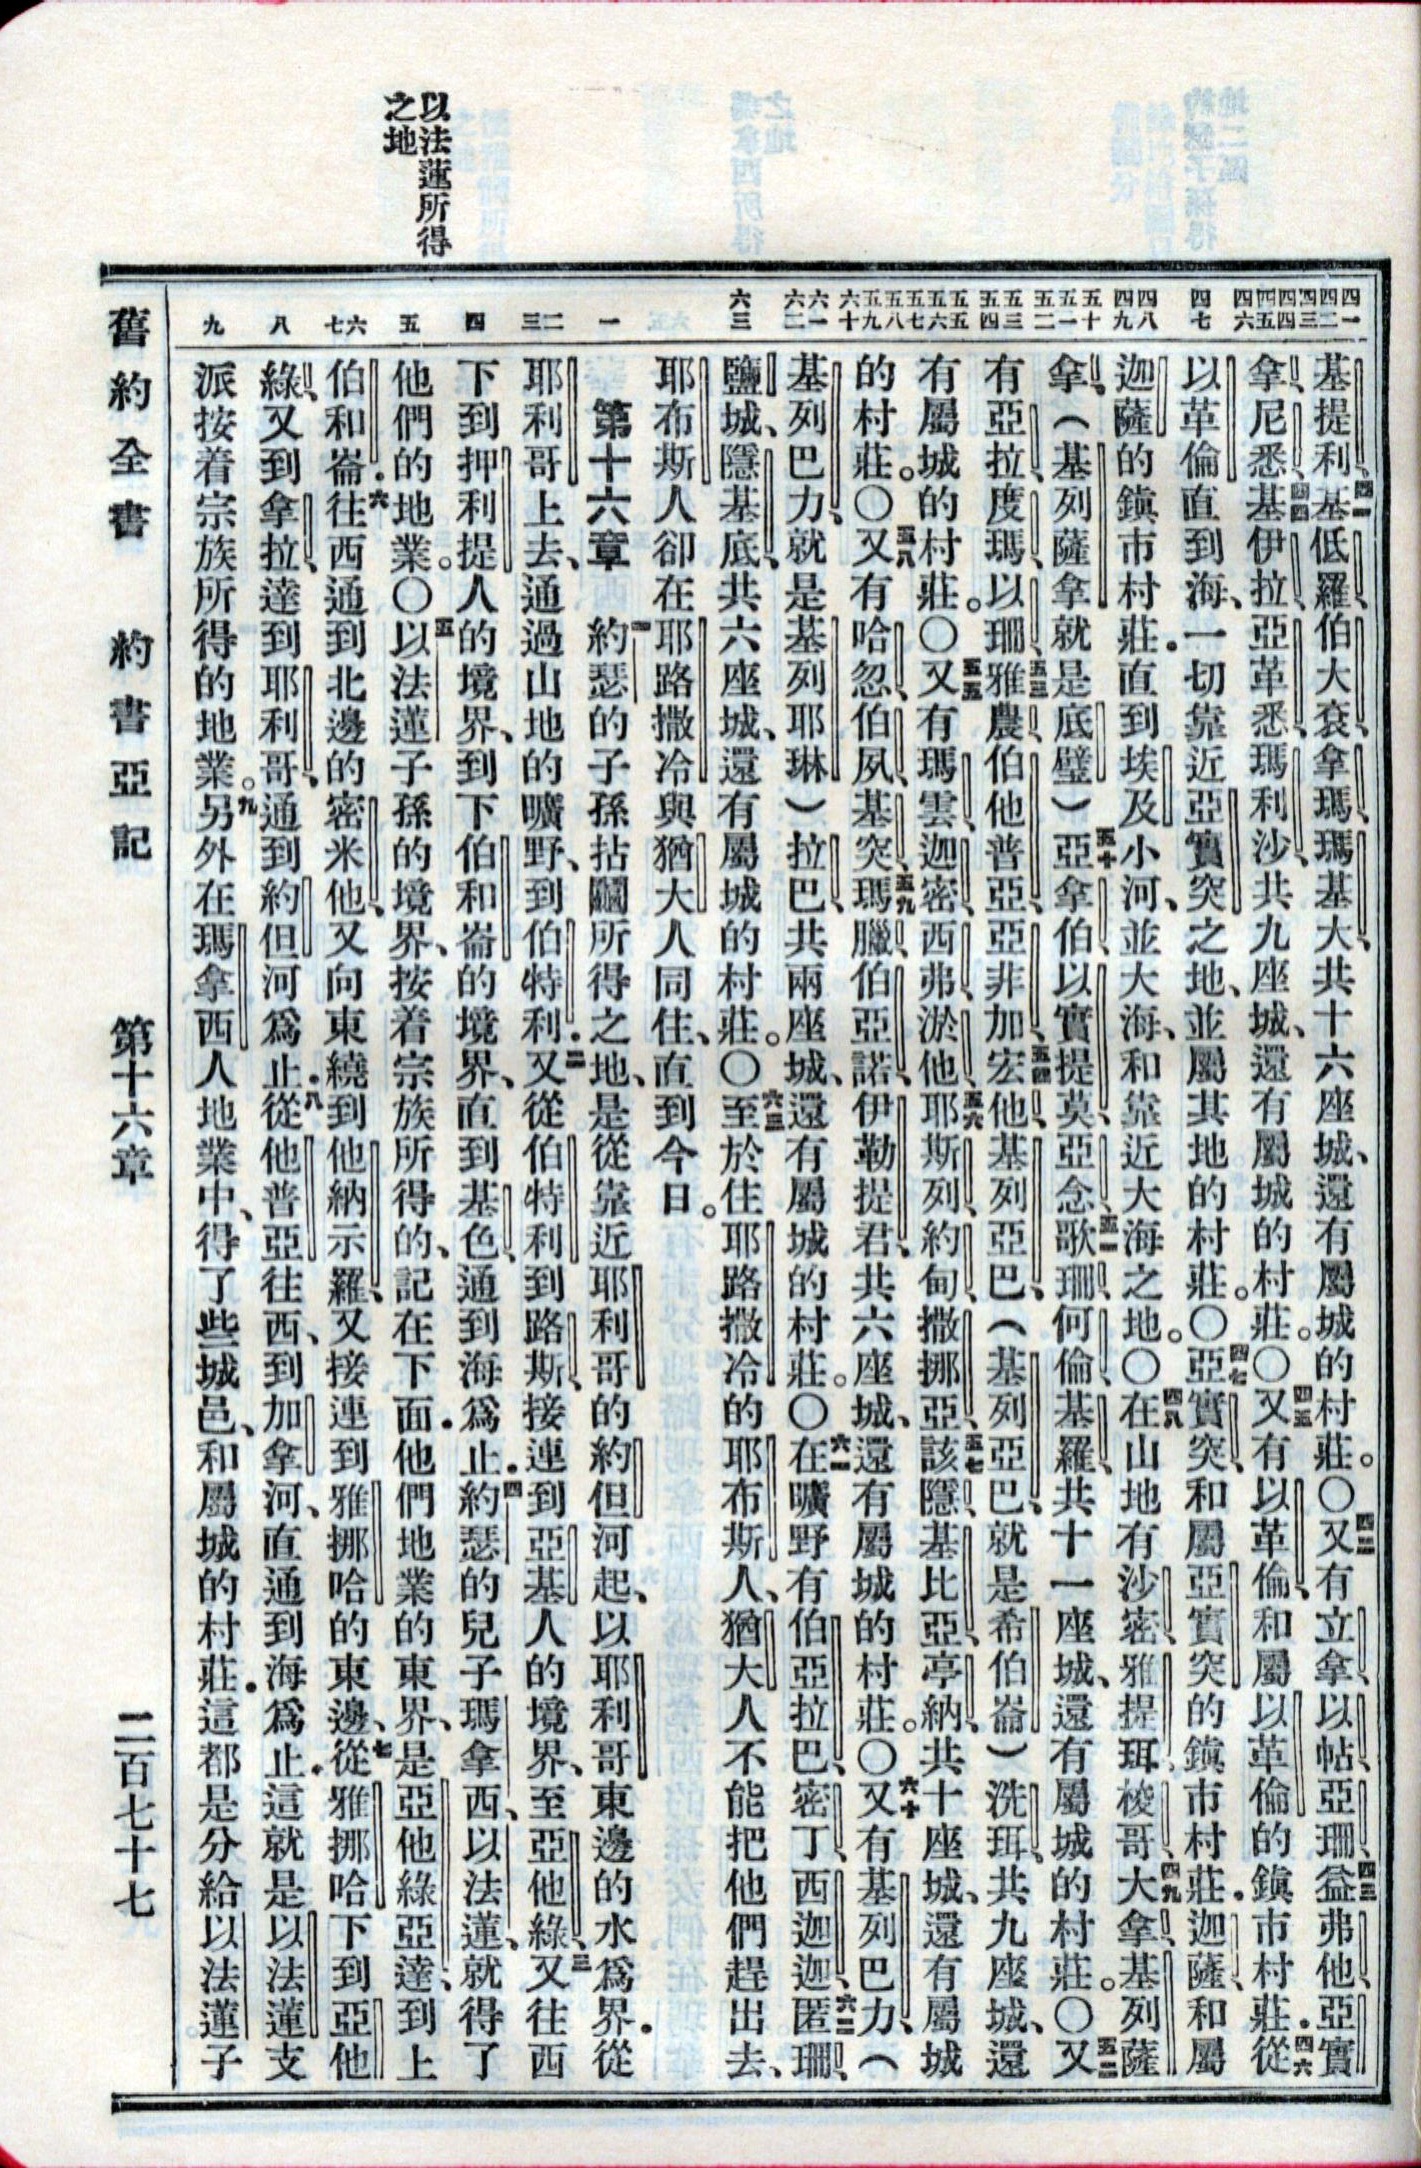 以法蓮所得
之地
四一 四二 四三 四四 四五 四六 四七 四八 四九 五十 五一 五二 五三 五四 五五 五六 五七 五八 五九 六十 六一 六二 六三 一 二 三 四 五 六 七 八 九
基提利、四一基低羅、伯大袞、拿瑪、瑪基大、共十六座城、還有屬城的村莊。〇四二又有立拿、以帖、亞珊、益四三弗他、亞實
拿、尼悉、四四基伊拉、亞革悉、瑪利沙、共九座城、還有屬城的村莊。〇四五又有以革倫、和屬以革倫的鎮市村莊．四六從
以革倫直到海、一切靠近亞實突之地、並屬其地的村莊。〇四七亞實突、和屬亞實突的鎮市村莊．迦薩、和屬
迦薩的鎮市村莊．直到埃及小河、並大海、和靠近大海之地。〇四八在山地有沙密、雅提珥、梭哥、四九大拿、基列薩
拿、（基列薩拿就是底璧）五十亞拿伯、以實提莫、亞念、五一歌珊、何倫、基羅、共十一座城、還有屬城的村莊。〇五二又
有亞拉、度瑪、以珊、五三雅農、伯他普亞、亞非加、五四宏他、基列亞巴、（基列亞巴就是希伯崙）洗珥、共九座城、還
有屬城的村莊。〇五五又有瑪雲、迦密、西弗、淤他、五六耶斯列、約甸、撒挪亞、五七該隱、基比亞、亭納、共十座城、還有屬城
的村莊。〇五八又有哈忽、伯夙、基突、五九瑪臘、伯亞諾、伊勒提君、共六座城、還有屬城的村莊。〇六十又有基列巴力、（
基列巴力、就是基列耶琳）拉巴、共兩座城、還有屬城的村莊。〇六一在曠野有伯亞拉巴、密丁、西迦迦、六二匿珊、
鹽城、隱基底、共六座城、還有屬城的村莊。〇六三至於住耶路撒冷的耶布斯人、猶大人不能把他們趕出去、
耶布斯人卻在耶路撒冷與猶大人同住、直到今日。
第十六章　一約瑟的子孫拈鬮所得之地、是從靠近耶利哥的約但河起、以耶利哥東邊的水爲界．從
耶利哥上去、通過山地的曠野、到伯特利．二又從伯特利到路斯、接連到亞基人的境界、至亞他綠．三又往西
下到押利提人的境界、到下伯和崙的境界、直到基色、通到海爲止．四約瑟的兒子瑪拿西、以法蓮、就得了
他們的地業。〇五以法蓮子孫的境界、按着宗族所得的、記在下面．他們地業的東界、是亞他綠亞達、到上
伯和崙．六往西通到北邊的密米他、又向東繞到他納示羅、又接連到雅挪哈的東邊、七從雅挪哈下到亞他
綠、又到拿拉、達到耶利哥、通到約但河爲止．八從他普亞往西、到加拿河、直通到海爲止．這就是以法蓮支
派按着宗族所得的地業。九另外在瑪拿西人地業中、得了些城邑、和屬城的村莊．這都是分給以法蓮子
舊約全書　約書亞記　第十六章　二百七十七